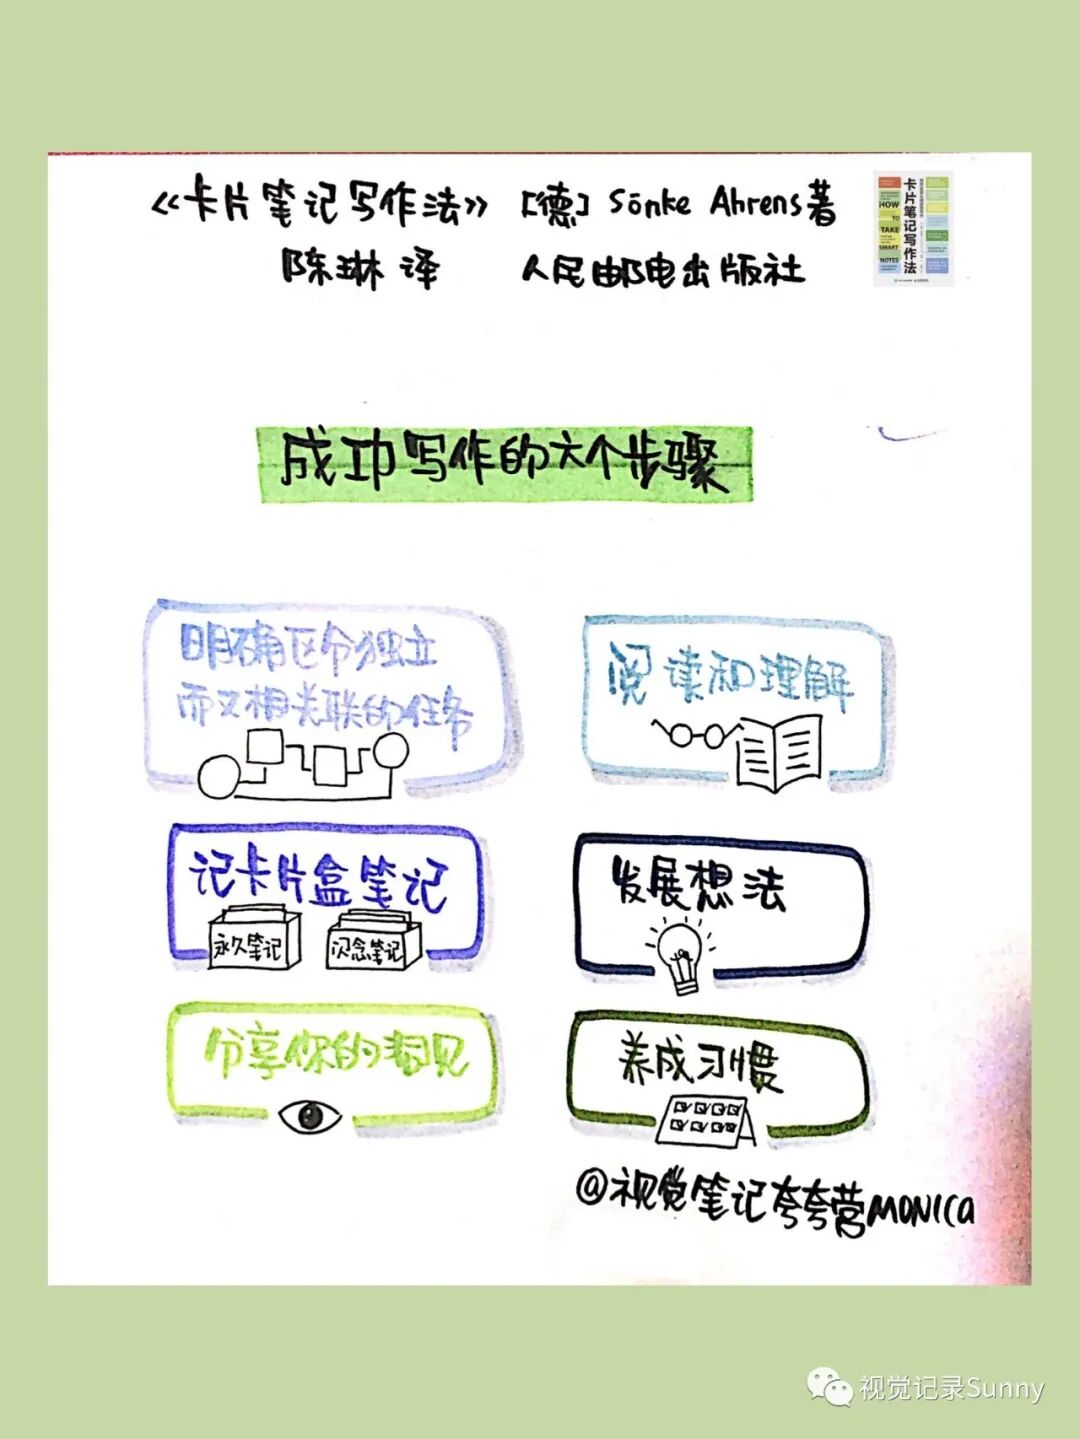 《卡片笔记写作法》 [德] Sönke Ahrens著
陈琳 译 人民邮电出版社
HOW
TO
TAKE
SMART
NOTES
卡片笔记写作法
成功写作的六个步骤
明确区分独立
而又相关联的任务
阅读和理解
记卡片盒笔记
永久笔记
闪念笔记
发展想法
分享你的洞见
养成习惯
@视觉笔记夸夸营MONICA
视觉记录Sunny